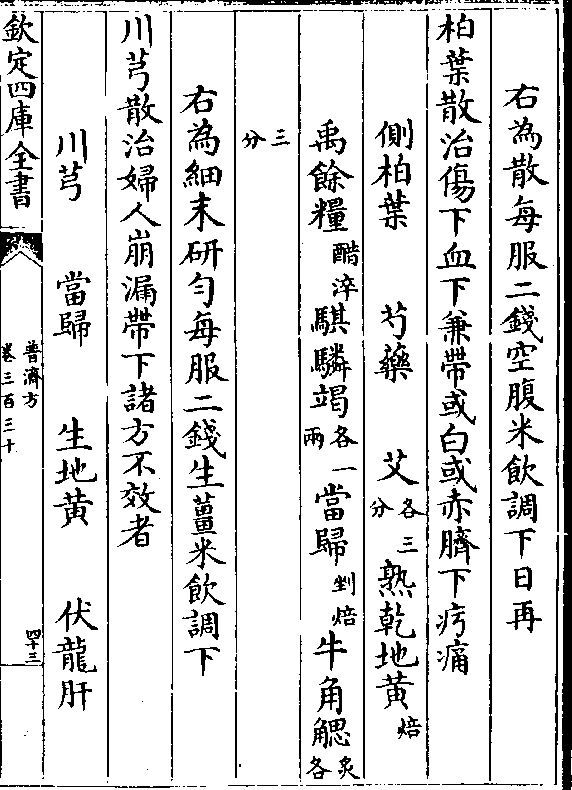 右為散每服二錢空腹米飲調下日再
柏葉散治傷下血下兼帶或白或赤臍下疞痛
側柏葉 芍藥 艾各三分 熟乾地黃焙
禹餘糧醋淬 騏驎竭各一兩 當歸剉焙 牛角䚡炙各
三分
右為細末研勻每服二錢生薑米飲調下
川芎散治婦人崩漏帶下諸方不效者
川芎 當歸 生地黃 伏龍肝
欽定四庫全書
普濟方
卷三百三十
四十三